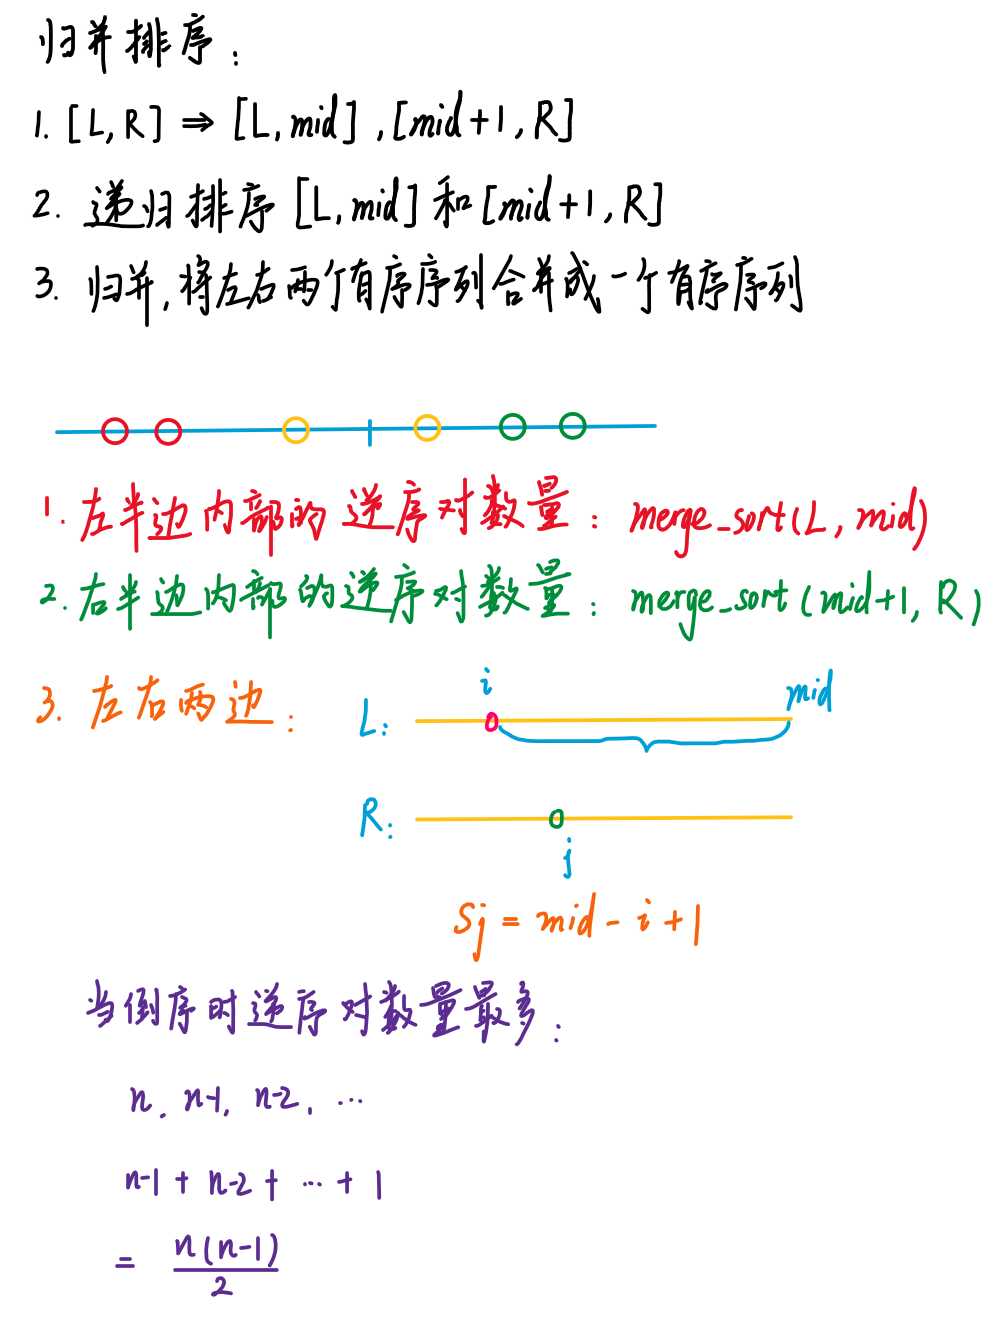 归并排序：
1. [L, R] ⇒ [L, mid], [mid+1, R]
2. 递归排序 [L, mid] 和 [mid+1, R]
3. 归并, 将左右两个有序序列合并成一个有序序列
1. 左半边内部的逆序对数量： merge_sort(L, mid)
2. 右半边内部的逆序对数量： merge_sort(mid+1, R)
3. 左右两边：
i mid
L:
R:
j
Sj = mid - i + 1
当倒序时逆序对数量最多：
n, n-1, n-2, ...
n-1 + n-2 + ... + 1
= n(n-1)
2